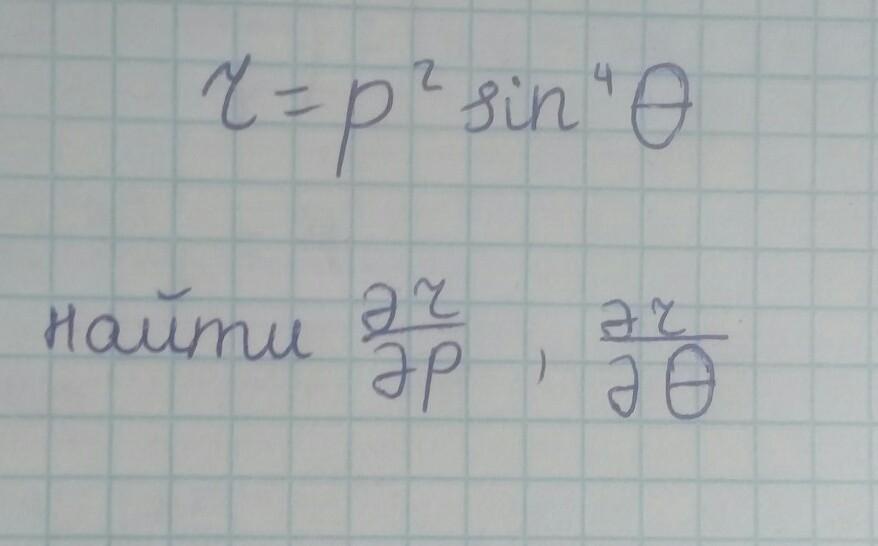 r = p² sin⁴ θ
найти ∂r/∂p , ∂r/∂θ